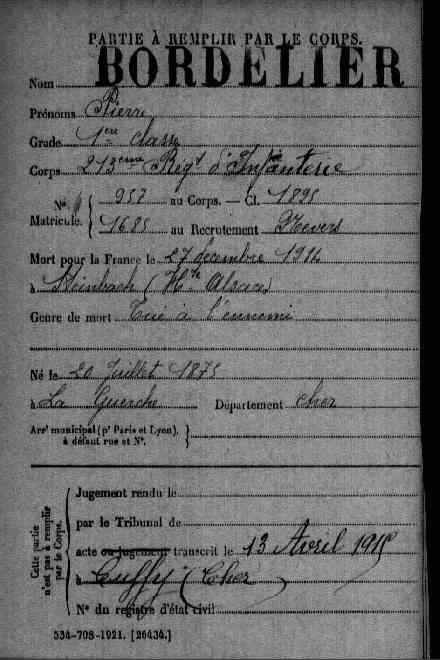 PARTIE À REMPLIR PAR LE CORPS.
Nom BORDELIER
Prénoms Pierre
Grade 1ère classe
Corps 213ème Régt d'Infanterie
N° 957 au Corps. — Cl. 1895
Matricule. 1685 au Recrutement Nevers
Mort pour la France le 27 décembre 1914
à Steinbach (Hte Alsace)
Genre de mort Tué à l'ennemi
Né le 20 Juillet 1875
à La Guerche Département Cher
Arrt municipal (pr Paris et Lyon),
à défaut rue et N°.
Cette partie
n'est pas à remplir
par le Corps.
Jugement rendu le
par le Tribunal de
acte ou jugement transcrit le 13 Avril 1915
à Cuffy (Cher)
N° du registre d'état civil
534-708-1921. [26434.]